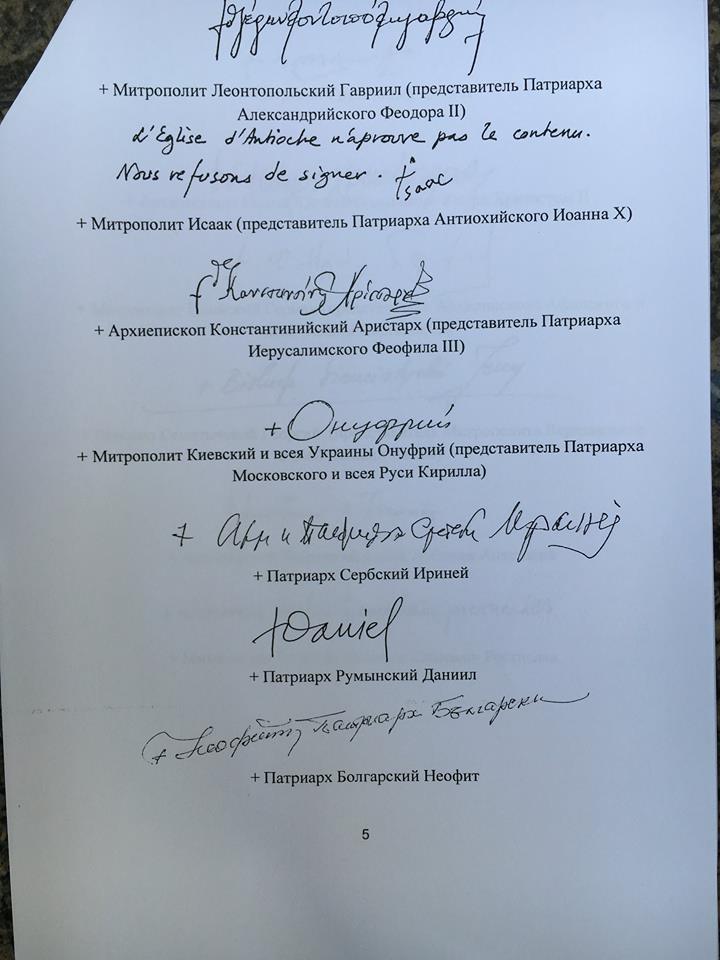 + Митрополит Леонтопольский Гавриил (представитель Патриарха
Александрийского Феодора II)
L'Eglise d'Antioche n'aprouve pas le contenu.
Nous refusons de signer. + Isaac
+ Митрополит Исаак (представитель Патриарха Антиохийского Иоанна X)
+ Архиепископ Константинийский Аристарх (представитель Патриарха
Иерусалимского Феофила III)
+ Онуфрий
+ Митрополит Киевский и всея Украины Онуфрий (представитель Патриарха
Московского и всея Руси Кирилла)
+ Патриарх Сербский Ириней
+ Daniel
+ Патриарх Румынский Даниил
+ Неофитъ Патриарх Български
+ Патриарх Болгарский Неофит
5